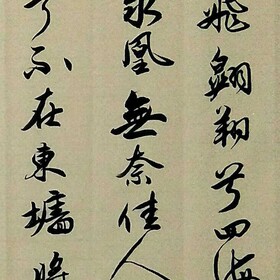 飛翺翔兮四海
求凰無奈佳人
兮不在東墻將